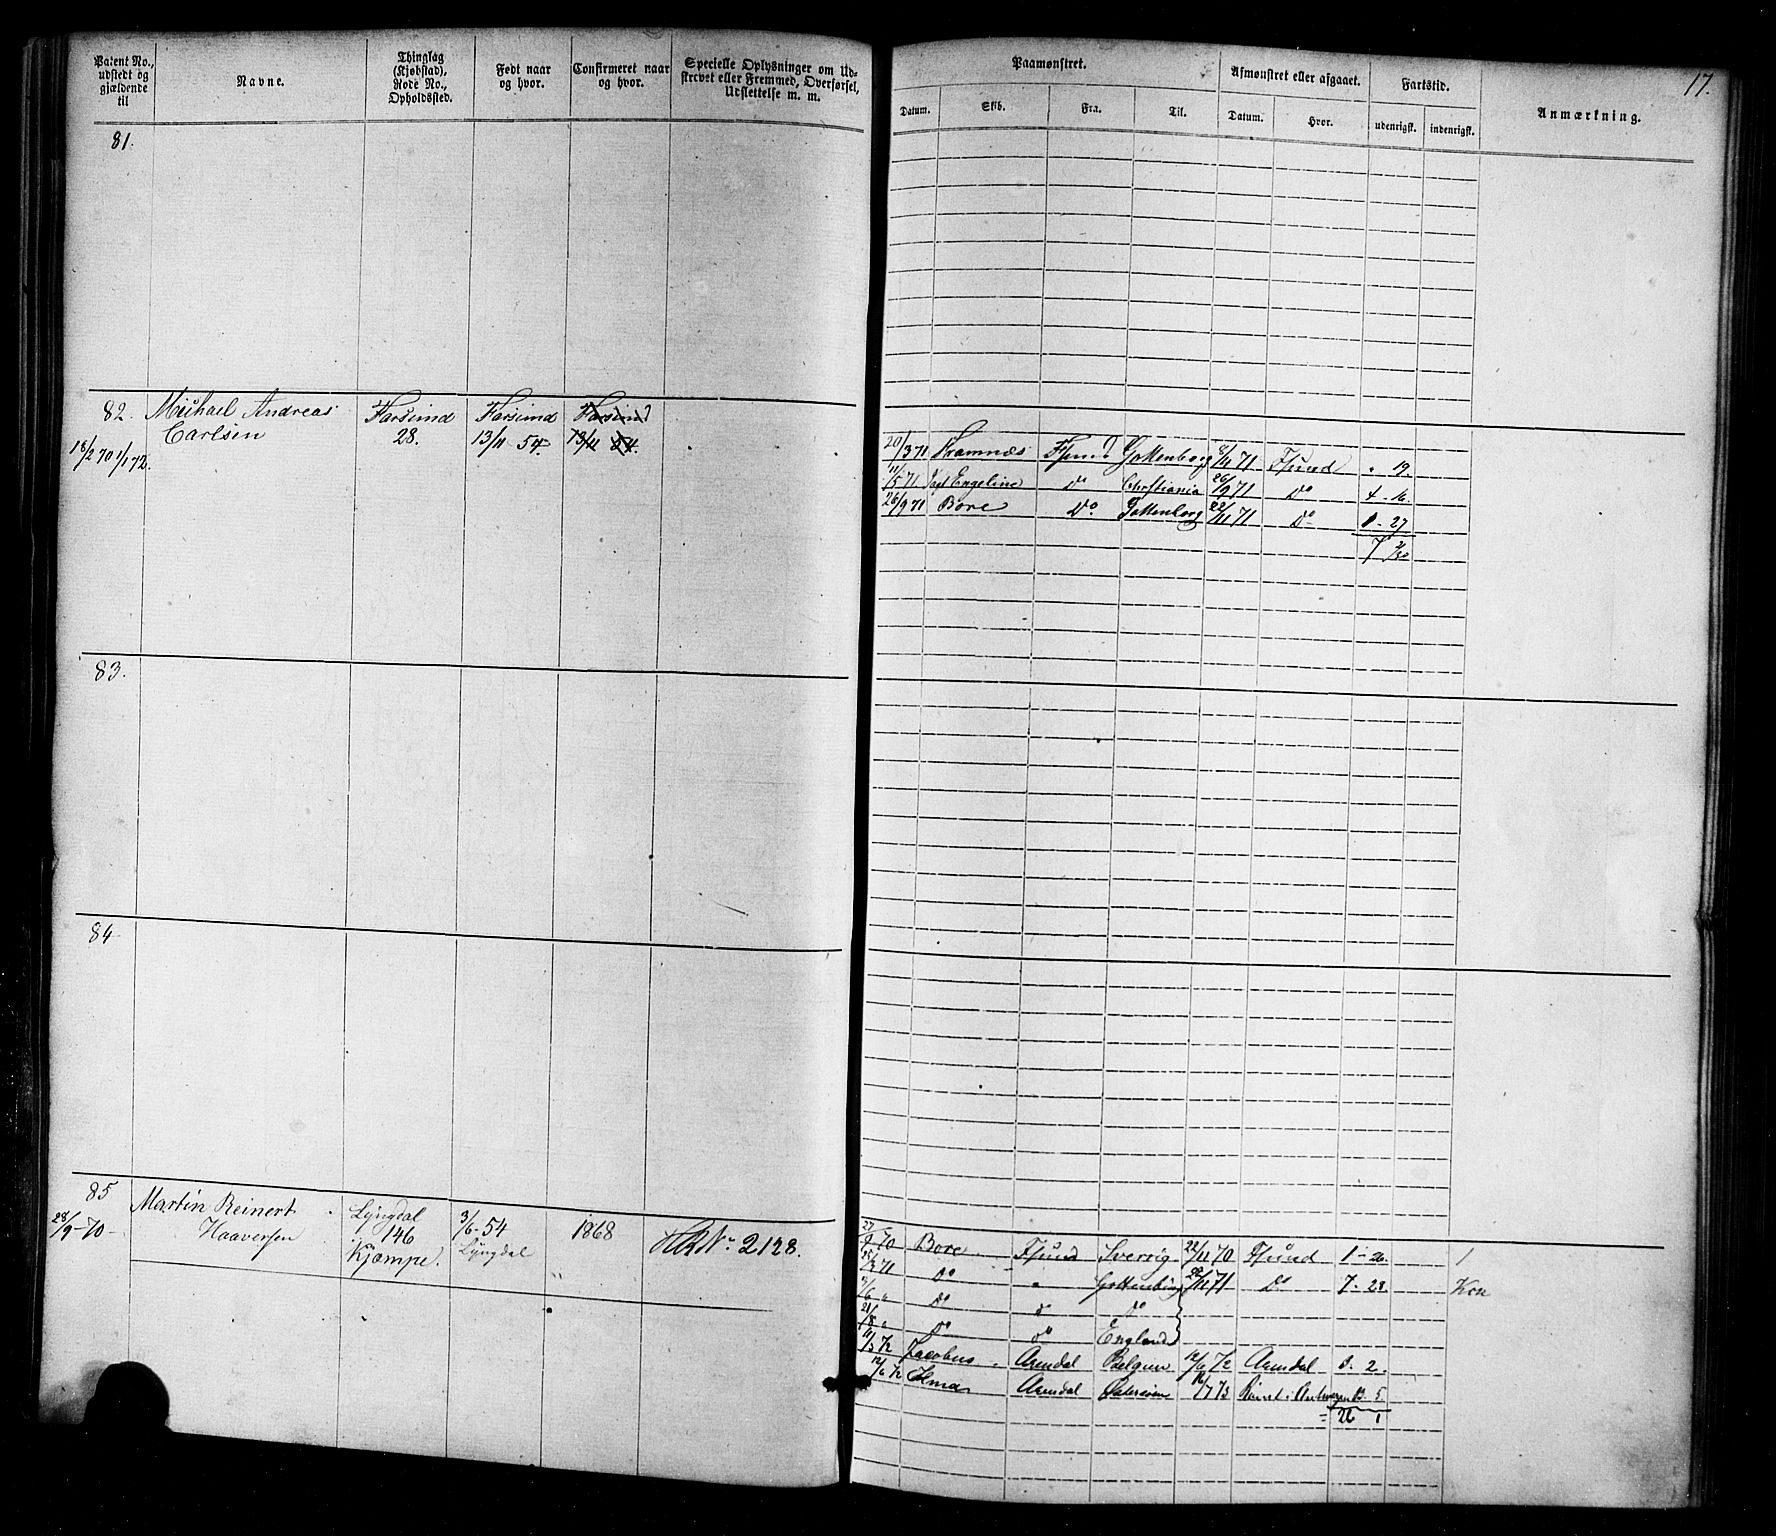 Patent No., udstedt og gjældende til
Navne.
Thinglag (Kjøbstad), Rode No., Opholdssted.
Født naar og hvor.
Confirmeret naar og hvor.
Specielle Oplysninger om Udstrevet eller Fremmed, Overførsel, Udslettelse m. m.
Paamønstret.
Afmønstret eller afgaaet.
Fartstid.
Anmærkning.
17.
Datum.
Skib.
Fra.
Til.
Datum.
Hvor.
udenrigsk.
indenrigsk.
81.
82. Michael Andreas Farsund Farsund Farsund
Carlsen 28. 13/11 54 13/11 54.
18/2 70 1/1 72.
20/3 71 Framnæs Fsund Gottenborg 8/4 71 Fsund " 19.
11/5 71 Jagt Engeline Do Christiania 26/9 71 Do 4 - 16.
26/9 71 Bore Do Gottenborg 22/11 71 Do 1 - 27
7 2/30
83.
84
85 Martin Reinert Lyngdal 3/6 - 54 1868
28/9 - 70 - Haaversen 146 Lyngdal No 2128.
Kjæmpe.
27/9 70 Bore Fsund Sverrig 22/11 70 Fsund 1 - 26.
25/3 71 Do " Gottenborg 22/11 71 Do 7 - 28
11/6 " Do Do Do
21/8 " Do Do England
11/3 72 Jacobus Arendal Belgien 12/6 72 Arendal 3. 2.
12/6 72 Arendal 16/7 73 13. 5.
= 26 1